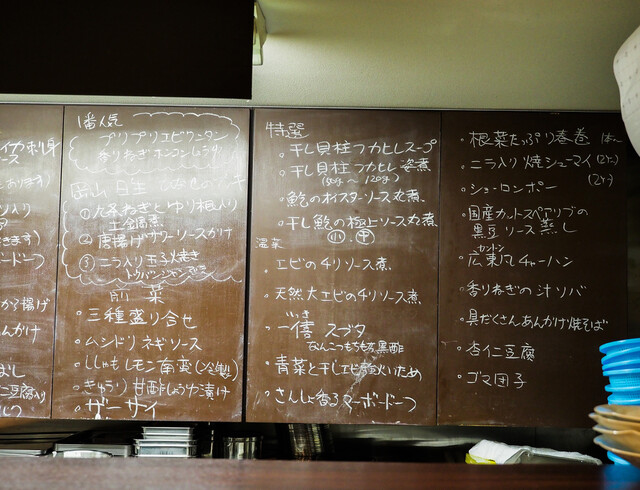 イカ刺身
ソース
入り
から揚げ
あんかけ
1番人気
プリプリエビワンタン
香りねぎホンコンしょうゆ
①九条ねぎとゆり根入り
土鍋煮
②唐揚げサワーソースかけ
③ニラ入り玉子焼き
前菜
・三種盛り合せ
・ムシドリネギソース
・ししゃもレモン南蛮(冷製)
・きゅうり甘酢しょうゆ漬け
・ザーサイ
特選
・干し貝柱フカヒレスープ
・干し貝柱フカヒレ姿煮
(80g〜120g)
・鮑のオイスターソース丸煮
・干し鮑の極上ソース丸煮
小、中
温菜
・エビのチリソース煮
・天然大エビのチリソース煮
スブタ
黒酢
・青菜と干しエビ炒いため
・さんしょ香るマーボードーフ
・根菜たっぷり春巻
・ニラ入り焼シューマイ(2ケ)
・ショーロンポー (2ケ)
・国産カットスペアリブの
黒豆ソース蒸し
カントン
・広東風チャーハン
・香りねぎの汁ソバ
・具だくさんあんかけ焼そば
・杏仁豆腐
・ゴマ団子